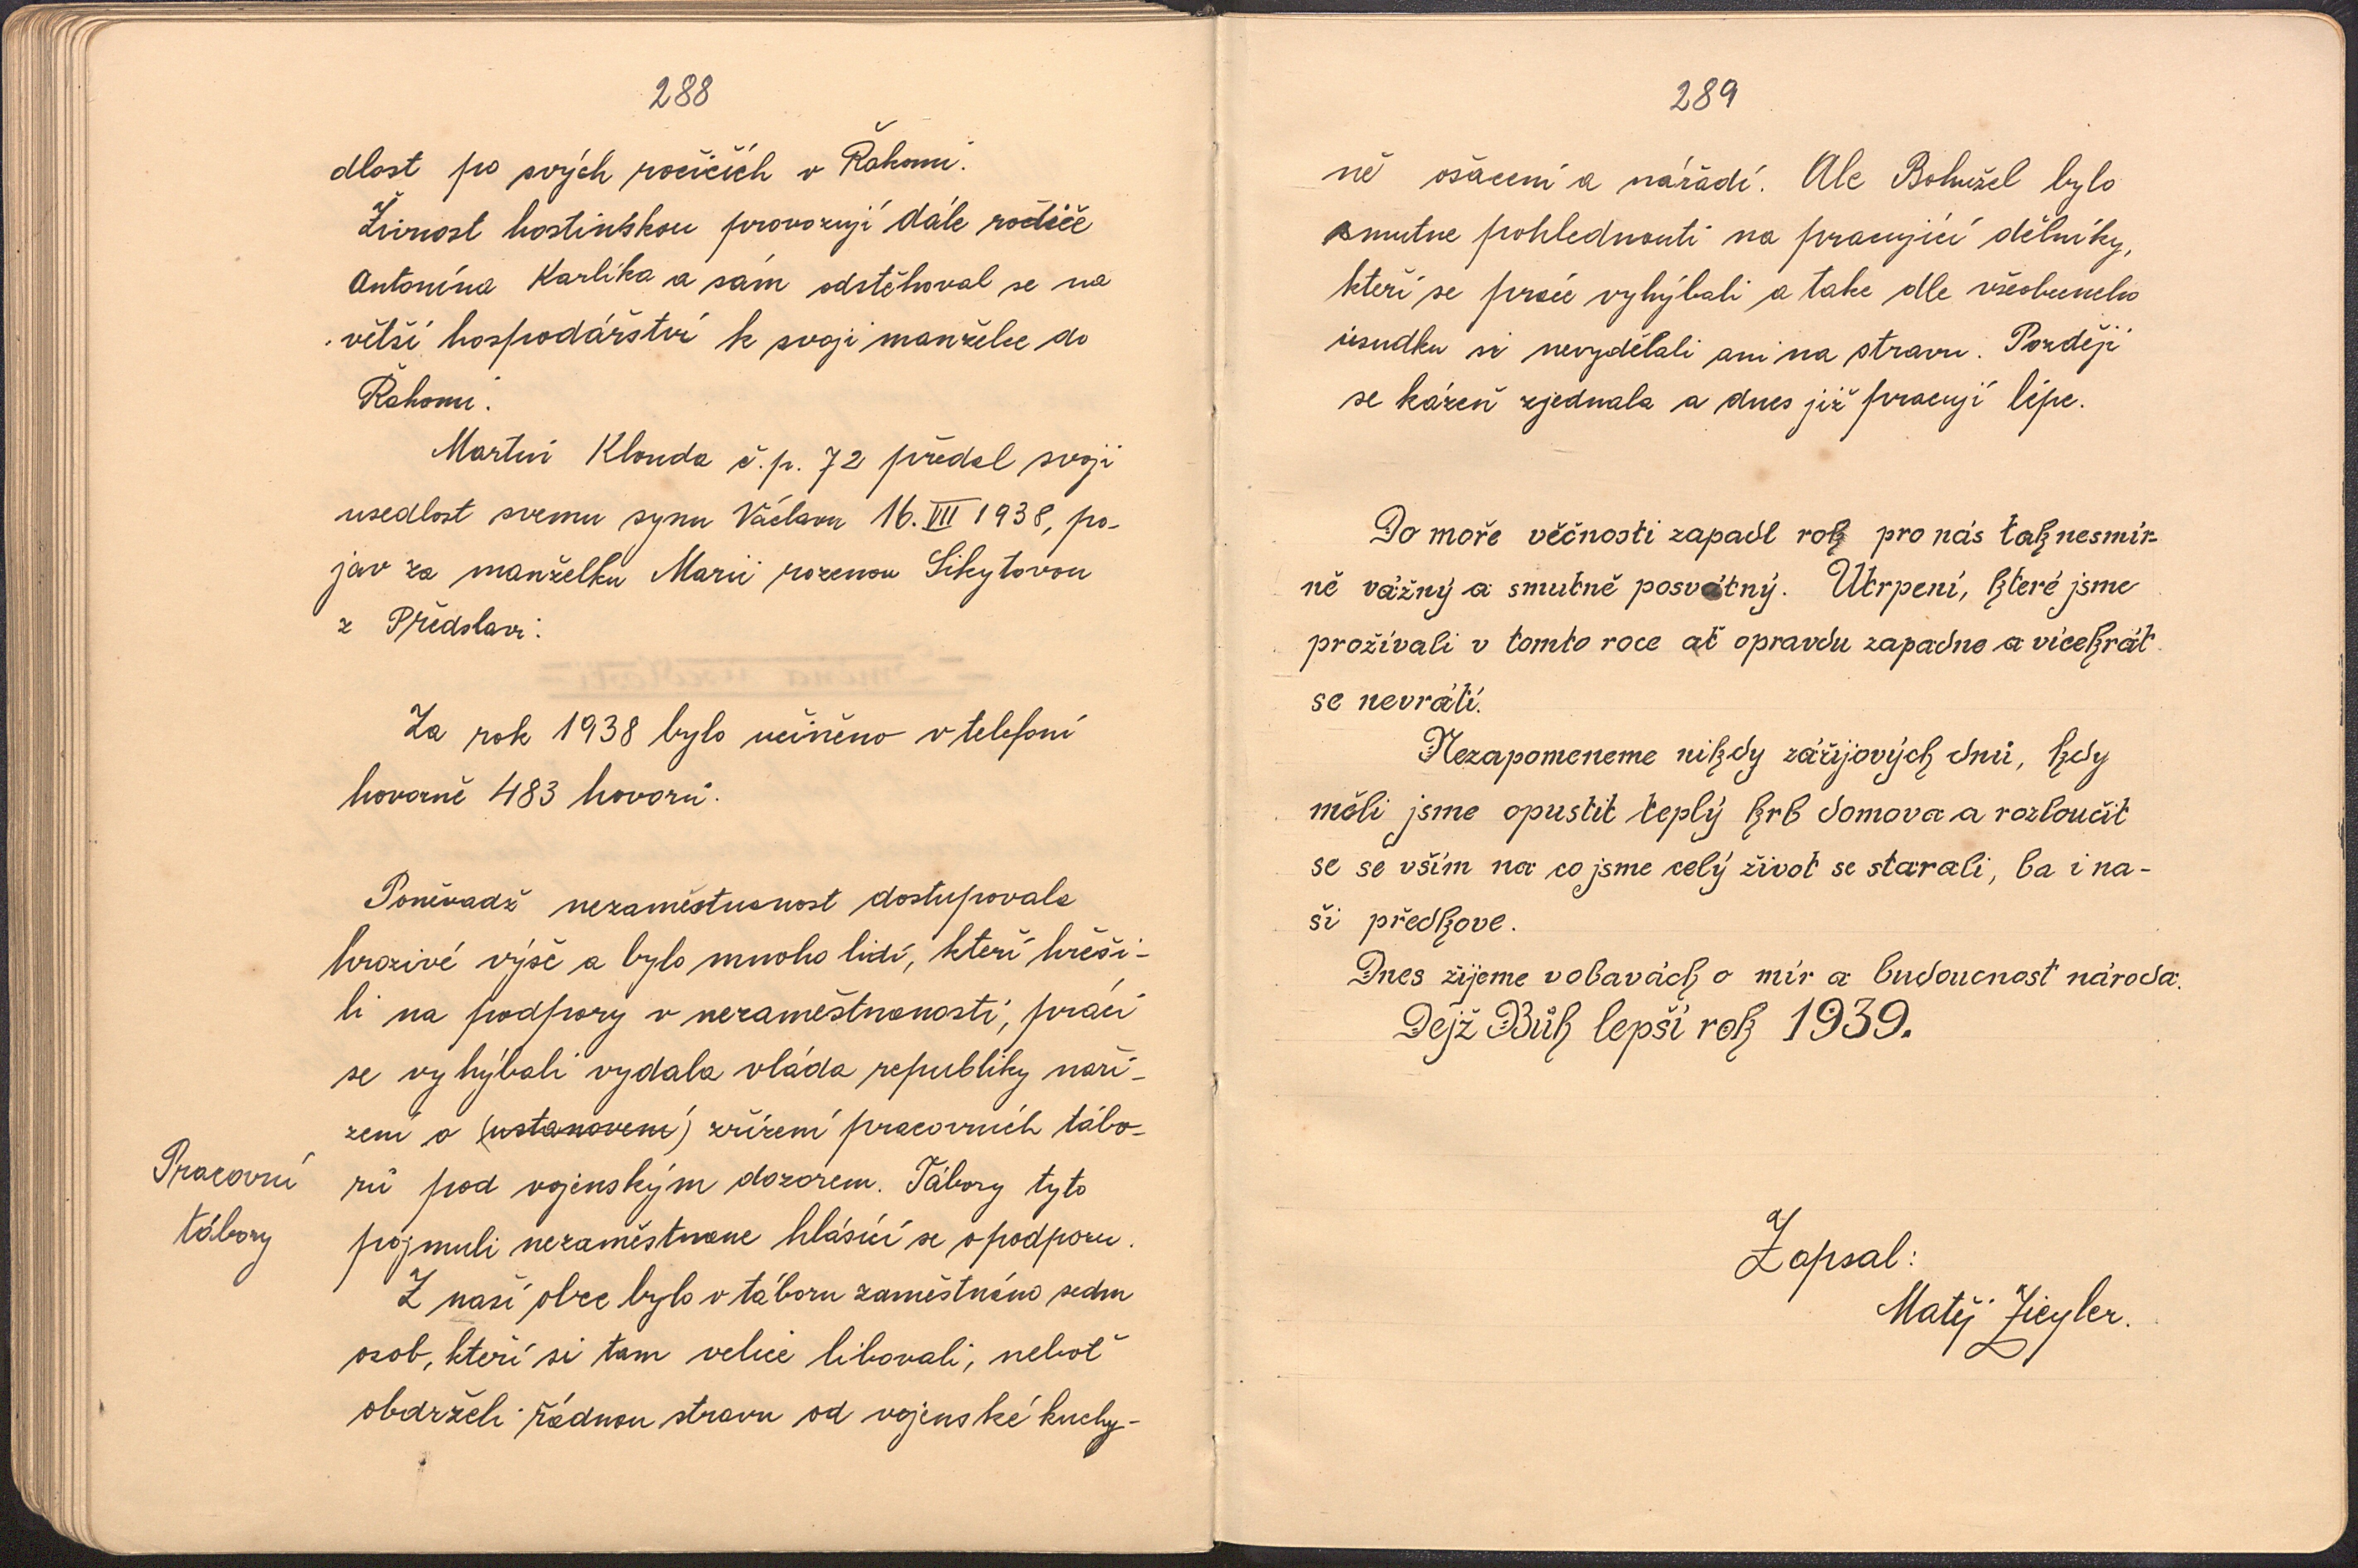 288
dlost po svých ročičích v Řakomi.
Živnost hostinskou provozují dále rodiče
Antonína Karlíka a sám odstěhoval se na
větší hospodářství k svoji manželce do
Řakomi.
Martin Klouda č.p. 72 předal svoji
usedlost svemu synu Václavu 16. VII 1938, po-
jav za manželku Marii rozenou Sikytovou
z Předslavi.
Za rok 1938 bylo učiněno v telefoní
hovorně 483 hovorů.
Poněvadž nezaměstnanost dostupovala
hrozivé výše a bylo mnoho lidí, kteří hřeši-
li na podpory v nezaměstnanosti, práci
se vyhýbali vydala vláda republiky naří-
zení o (ustanovení) zřízení pracovních tábo-
Pracovní
tábory
rů pod vojenským dozorem. Tábory tyto
pojmuli nezaměstnane hlásící se o podporu.
Z naší obce bylo v táboru zaměstnáno sedm
osob, kteří si tam velice libovali, neboť
obdrželi řádnou stravu od vojenské kuchy-
289
ně ošacení a nářadí. Ale Bohužel bylo
smutne pohlednouti na pracující dělníky,
kteří se práce vyhýbali a take dle všeobecneho
úsudku si nevydělali ani na stravu. Později
se kázeň zjednala a dnes již pracují lépe.
Do moře věčnosti zapadl rok pro nás tak nesmír-
ně vážný a smutně posvátný. Utrpení, které jsme
prožívali v tomto roce ať opravdu zapadne a vícekrát
se nevrátí.
Nezapomeneme nikdy zářijových dnů, kdy
měli jsme opustit teplý krb domova a rozloučit
se se vším na co jsme celý život se starali, ba i na-
ši předkove.
Dnes žijeme v obavách o mír a budoucnost národa.
Dejž Bůh lepší rok 1939.
Zapsal:
Matěj Ziegler.